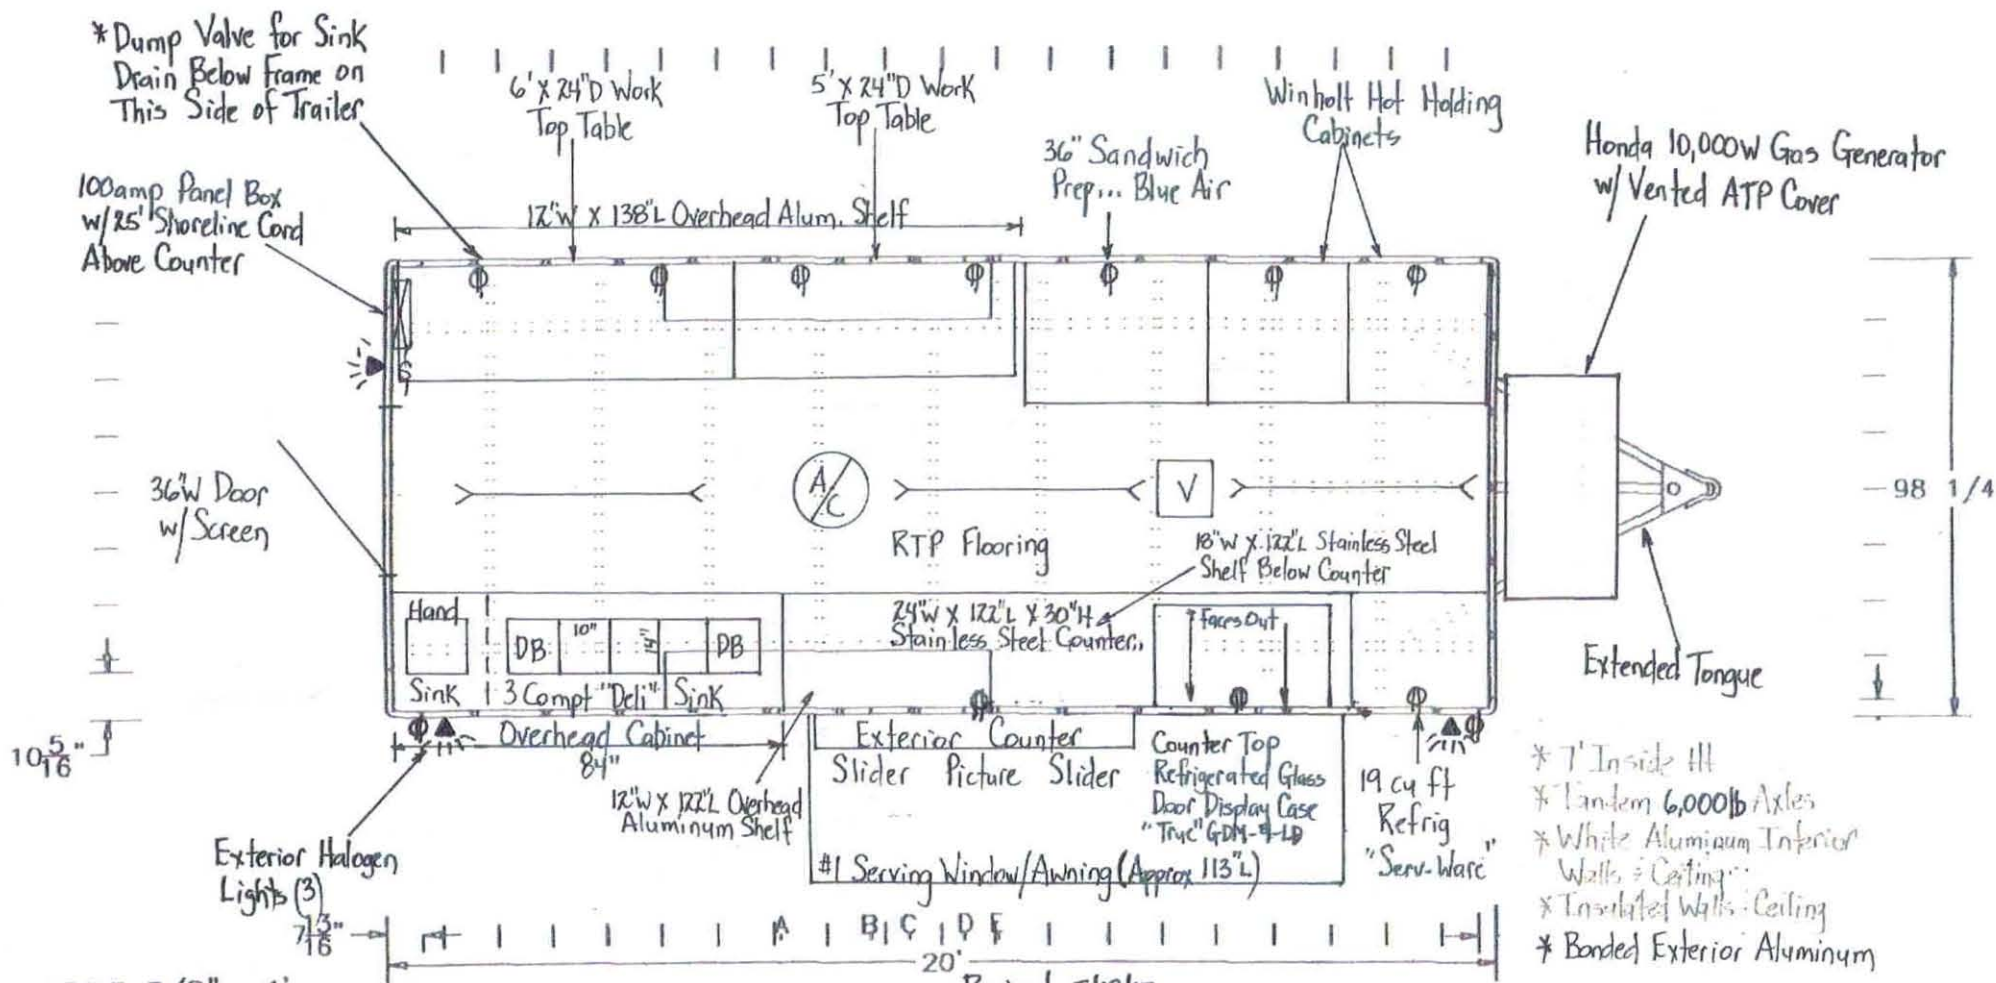 *Dump Valve for Sink
Drain Below Frame on
This Side of Trailer
6' X 24"D Work
Top Table
5' X 24"D Work
Top Table
Winholt Hot Holding
Cabinets
36" Sandwich
Prep... Blue Air
Honda 10,000W Gas Generator
w/ Vented ATP Cover
100amp Panel Box
w/25' Shoreline Cord
Above Counter
12"W X 138"L Overhead Alum. Shelf
S
36"W Door
w/ Screen
A/C
V
98 1/4
RTP Flooring
18"W X 122"L Stainless Steel
Shelf Below Counter
Hand
Sink
DB
10"
14"
DB
3 Compt "Deli" Sink
24"W X 122"L X 30"H
Stainless Steel Counter..
Faces Out
Extended Tongue
10 5/16"
Overhead Cabinet
84"
Exterior Counter
Slider Picture Slider
12"W X 122"L Overhead
Aluminum Shelf
Counter Top
Refrigerated Glass
Door Display Case
"True" GDM-
19 cu ft
Refrig
"Serv-Ware"
#1 Serving Window/Awning (Approx 113"L)
Exterior Halogen
Lights (3)
* 7' Inside Ht
* Tandem 6,000lb Axles
* White Aluminum Interior
Walls & Ceiling
* Insulated Walls & Ceiling
* Bonded Exterior Aluminum
7 13/16"
A B C D E
20'